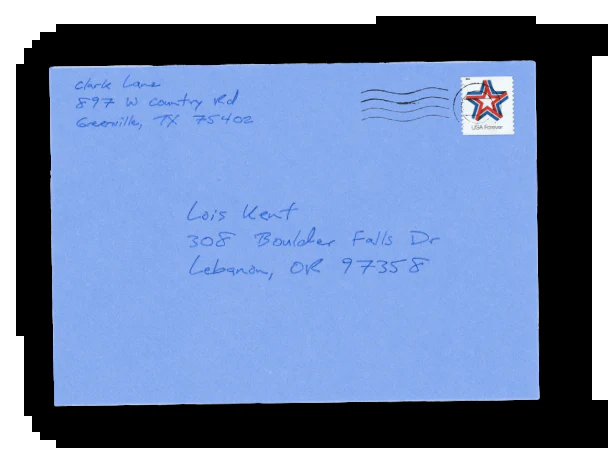 Clark Lane
897 W Country Rd
Greenville, TX 75402
USA Forever
Lois Kent
308 Boulder Falls Dr
Lebanon, OR 97358